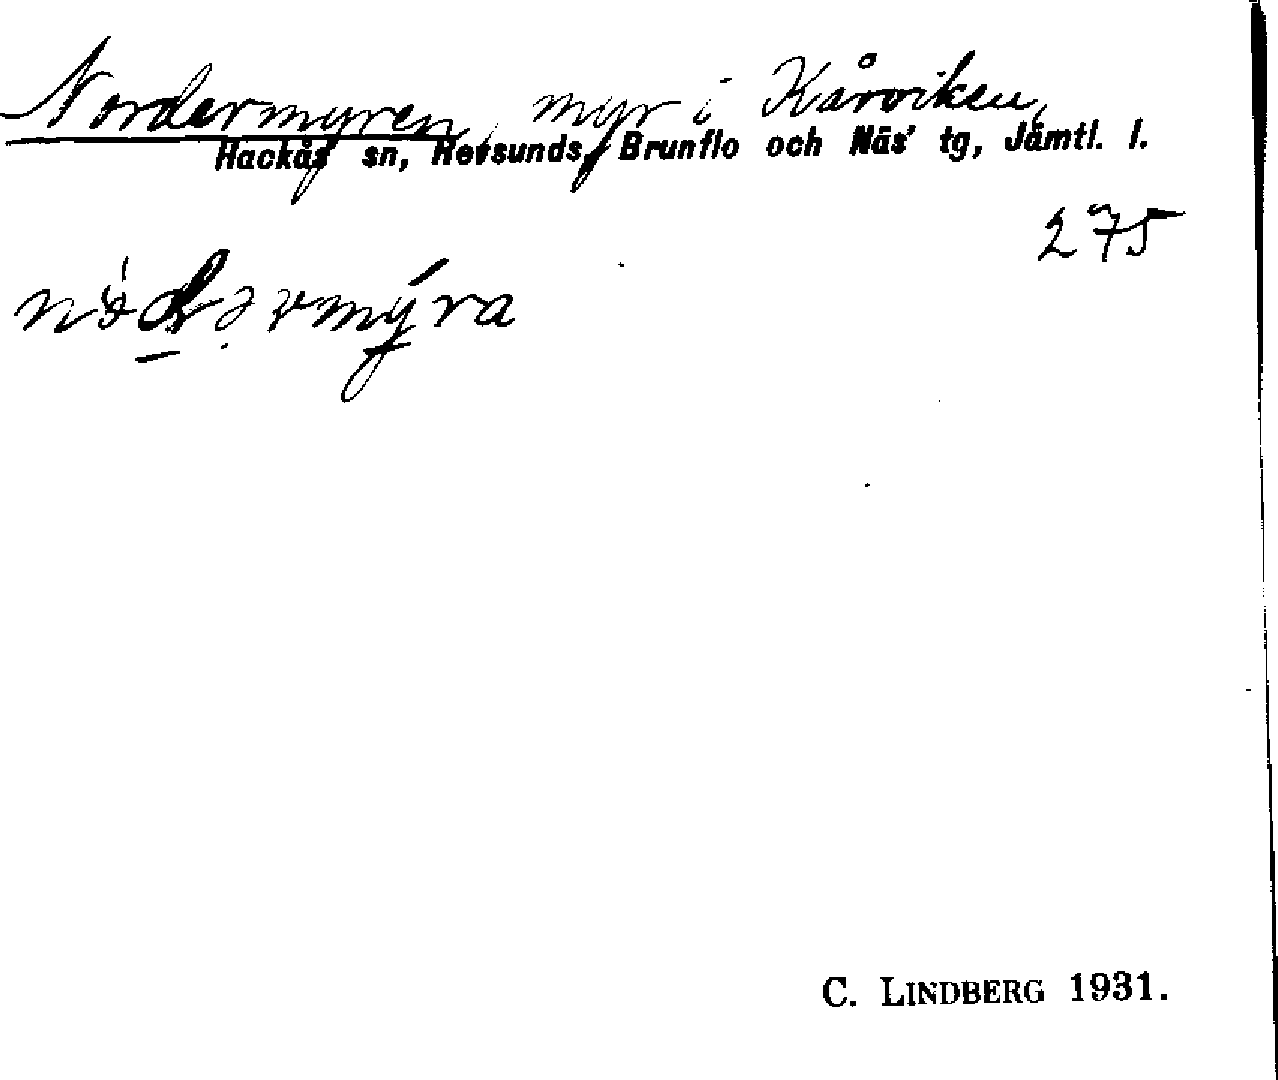 Nordermyren, myr i Kårviken,
Hackås sn, Revsunds, Brunflo och Näs' tg, Jämtl. l.
275
C. LINDBERG 1931.